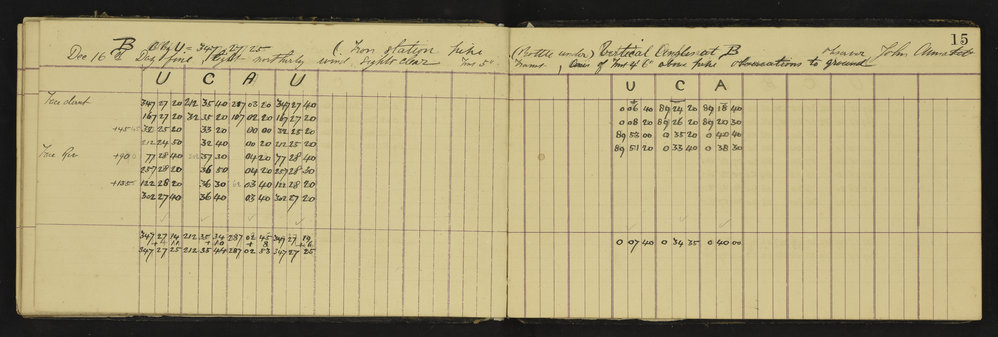 15
B
by U = 347 27 25
Iron station
Dec 16
Day fine light northerly wind, sights clear
(Bottle under) Vertical Angles at B
Observer John
above observations to ground
U C A U
U C A
347 27 20 212 35 40 287 03 20 347 27 40
167 27 20 32 35 20 107 02 20 167 27 20
+45 32 25 20 33 20 00 00 32 25 20
212 24 50 32 40 00 20 212 25 20
+90 77 28 40 37 30 04 20 77 28 40
257 28 20 36 50 04 20 257 28 20
+135 122 28 20 36 30 03 40 122 28 20
302 27 40 36 40 03 40 302 27 20
347 27 14 212 35 34 287 02 45 347 27 19
+ 11 + 10 + 8 + 6
347 27 25 212 35 44 287 02 53 347 27 25
0 06 40 89 24 20 89 18 40
0 08 20 89 26 20 89 20 30
89 53 00 0 35 20 0 40 40
89 51 20 0 33 40 0 38 30
0 07 40 0 34 35 0 40 00